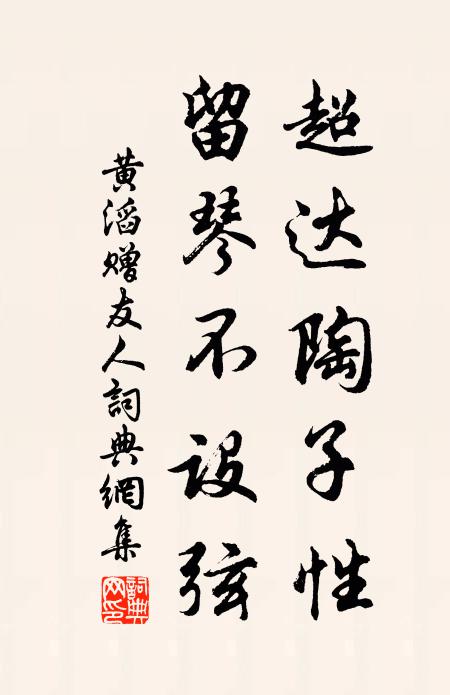 超达陶子性
留琴不设弦
黄滔赠友人詞典網集
詞典网印